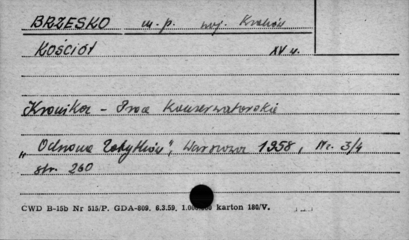 BRZESKO m.p. woj. Kraków
KOŚCIÓŁ XV w.
Kronika - Prace Konserwatorskie
"Ochrona Zabytków", Warszawa 1958, Nr. 3/4
str. 260
CWD B-15b Nr 515/P. GDA-809. 6.3.59. 1.000.000 karton 180/V.